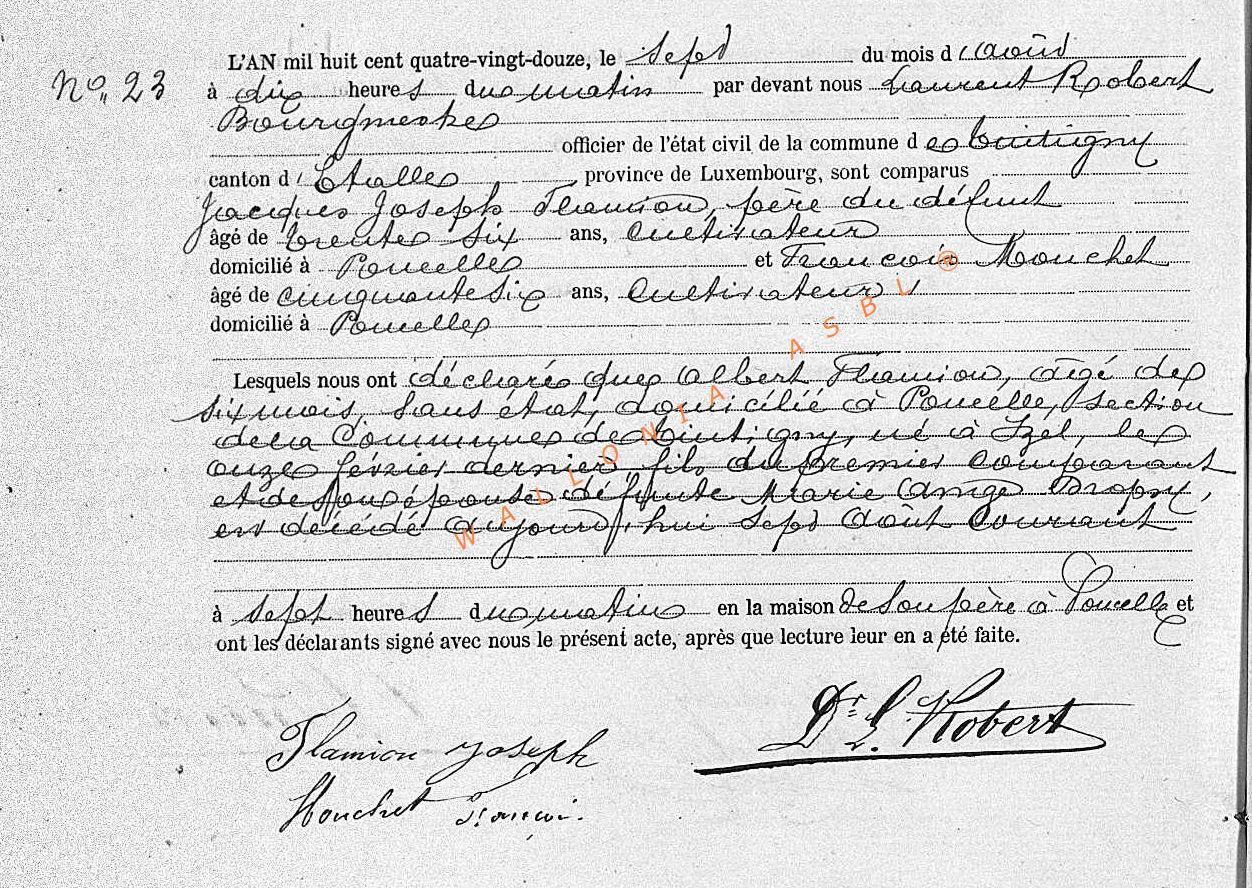 L'AN mil huit cent quatre-vingt-douze, le sept du mois d'août
N° 23
à dix heures du matin par devant nous Laurent Robert
Bourgmestre
officier de l'état civil de la commune de Tintigny
canton d'Etalle, province de Luxembourg, sont comparus
Jacques Joseph Flamion, père du défunt
âgé de trente six ans, cultivateur
domicilié à Poncelle et François Mouchet
âgé de cinquante six ans, cultivateur,
domicilié à Poncelle
Lesquels nous ont déclaré que Albert Flamion, âgé de
six mois, sans état, domicilié à Poncelle, section
de la Commune de Tintigny, né à Izel, le
onze février dernier, fils du premier comparant
et de son épouse défunte Marie Ange Dropsy,
est décédé aujourd'hui sept août courant
à sept heures du matin en la maison de son père à Poncelle et
ont les déclarants signé avec nous le présent acte, après que lecture leur en a été faite.
Dr. L. Robert
Flamion Joseph
Mouchet François
WALLONIA ASBL @